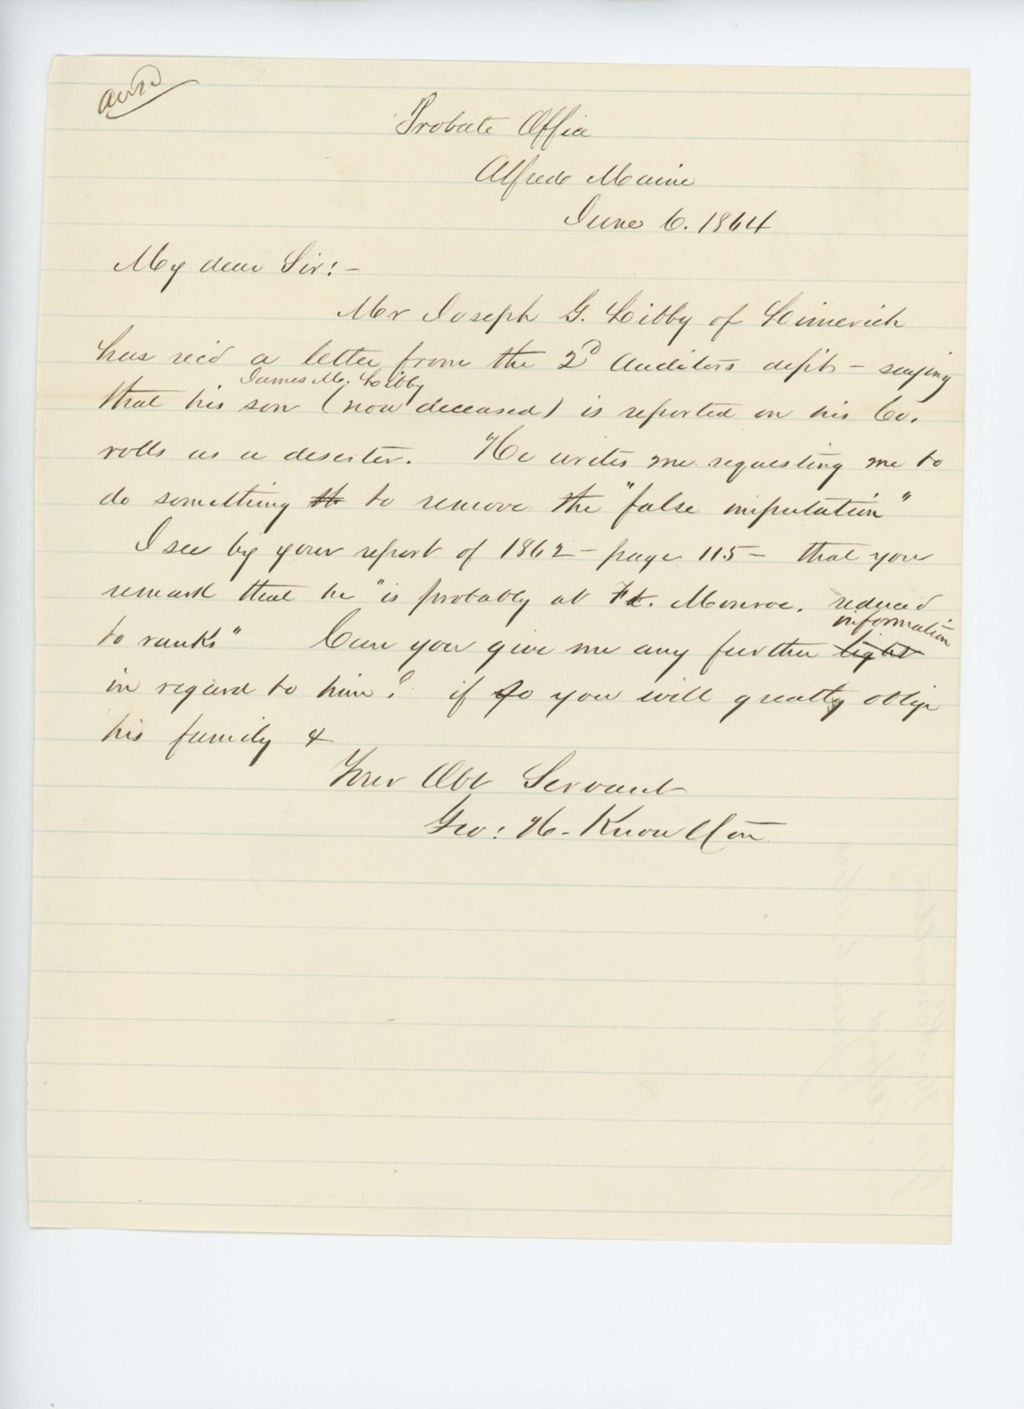 ansd
Probate Office
Alfred Maine
June 6. 1864
My dear Sir:-
Mr Joseph G. Libby of Limerick
has rec'd a letter from the 2d Auditors dept - saying
James M. Libby
that his son (now deceased) is reported on his Co.
rolls as a deserter. He writes me requesting me to
do something th to remove the "false imputation"
I see by your report of 1862 - page 115 - that you
remark that he "is probably at Ft. Monroe. reduced
information
to ranks" Can you give me any further light
in regard to him? if so you will greatly oblige
his family &
Your Obt Servant
Geo: H. Knowlton